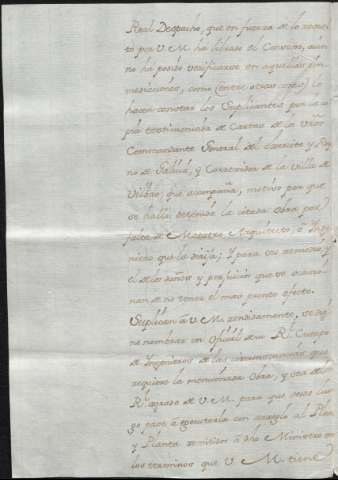 Real Despacho, que en fuerza de lo resuel-
to por V. M. ha librado el Consejo, aun
no ha podido verificarse en aquellas in-
mediaciones, como (entre otras cosas) lo
hacen constar los Suplicantes por la co-
pia testimoniada de Cartas de
Commandante General del exercito y Rey-
no de Galicia, y Corregidor de la Villa de
que acompaña, motivo por que
se halla detenida la citada obra por
falta de Maestro Arquitecto, ó Inge-
niero que la dirija; Y para su remedio, y
el de los daños y perjuicios que se ocasio-
nan de no tener el mas pronto efecto.
Suplican á V. M. rendidamente, se dig-
ne nombrar un Oficial de su Rl. Cuerpo
de Ingenieros de las circunstancias que
requiere la mencionada Obra, y sea del
Rl. agrado de V. M. para que desde lue-
go pase á executarla con arreglo al Plan
y Planta remitidos á dho Ministro en
los terminos que V. M. tiene